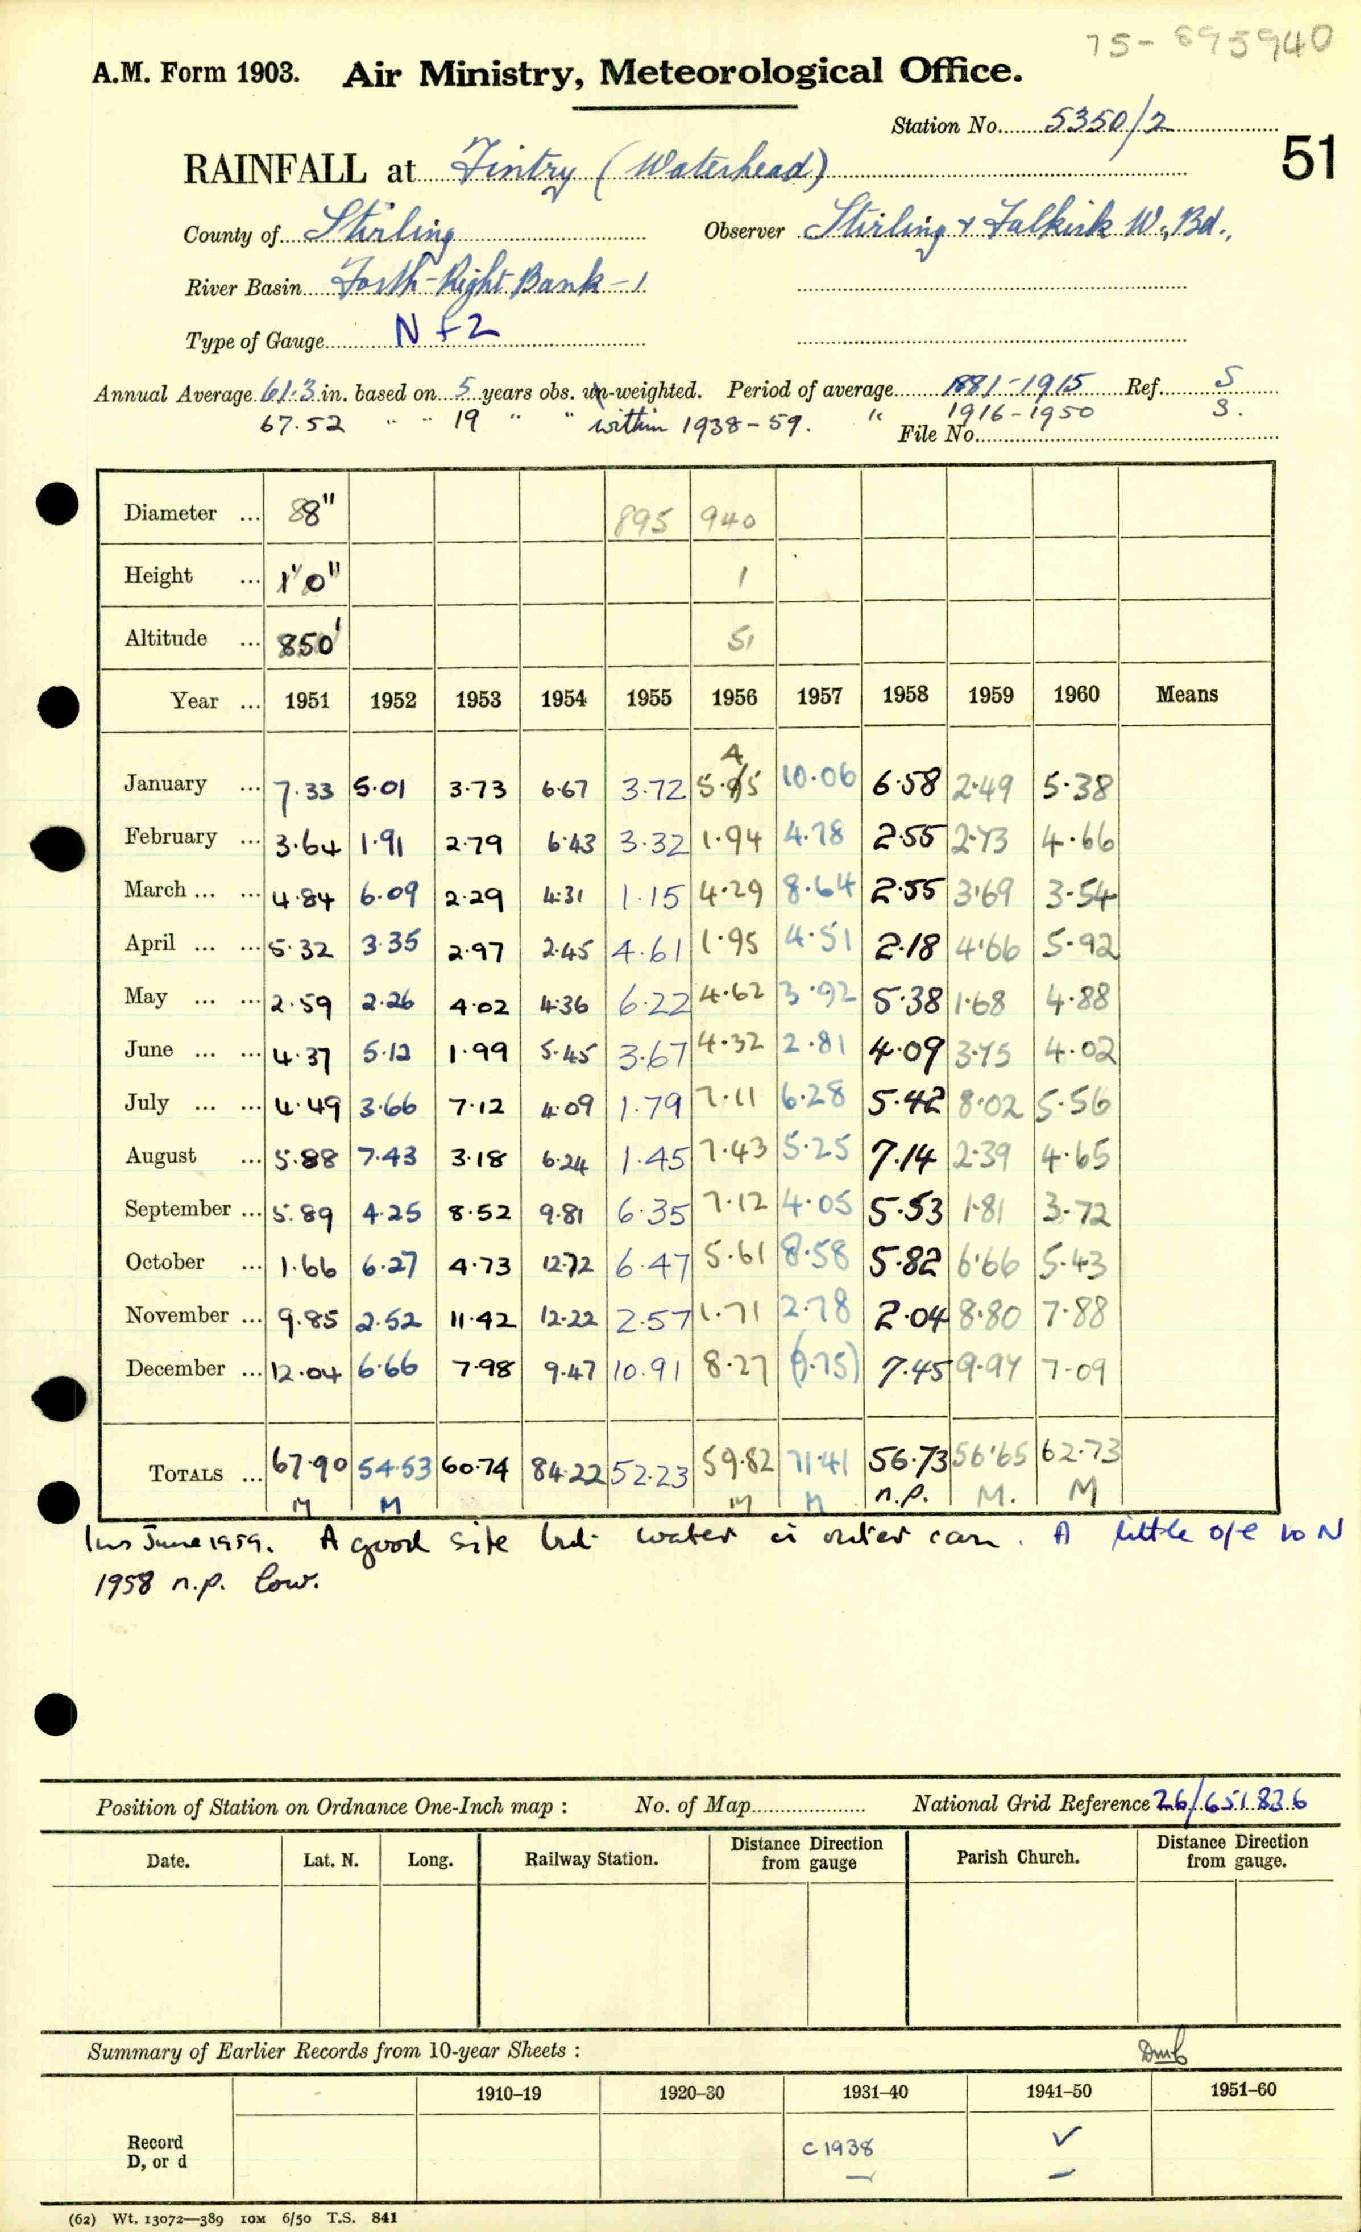 75-895940
A.M. Form 1903. Air Ministry, Meteorological Office.
Station No. 5350/2
51
RAINFALL at Fintry (Waterhead)
County of Stirling Observer Stirling & Falkirk W. Bd.,
River Basin Forth-Right Bank-1
Type of Gauge N f2
Annual Average 61.3 in. based on 5 years obs. un-weighted. Period of average 1881-1915 Ref. S
67.52 " " 19 " " within 1938-59. " 1916-1950 S.
File No.
Diameter ... 8" 895 940
Height ... 1'0" 1
Altitude ... 850' 51
Year ... 1951 1952 1953 1954 1955 1956 1957 1958 1959 1960 Means
January ... 7.33 5.01 3.73 6.67 3.72 5.45 10.06 6.58 2.49 5.38
February ... 3.64 1.91 2.79 6.43 3.32 1.94 4.78 2.55 2.73 4.66
March ... ... 4.84 6.09 2.29 4.31 1.15 4.29 8.64 2.55 3.69 3.54
April ... ... 5.32 3.35 2.97 2.45 4.61 1.95 4.51 2.18 4.66 5.92
May ... ... 2.59 2.26 4.02 4.36 6.22 4.62 3.92 5.38 1.68 4.88
June ... ... 4.37 5.12 1.99 5.45 3.67 4.32 2.81 4.09 3.75 4.02
July ... ... 4.49 3.66 7.12 4.09 1.79 7.11 6.28 5.42 8.02 5.56
August ... 5.88 7.43 3.18 6.24 1.45 7.43 5.25 7.14 2.39 4.65
September ... 5.89 4.25 8.52 9.81 6.35 7.12 4.05 5.53 1.81 3.72
October ... 1.66 6.27 4.73 12.72 6.47 5.61 8.58 5.82 6.66 5.43
November ... 9.85 2.52 11.42 12.22 2.57 1.71 2.78 2.04 8.80 7.88
December ... 12.04 6.66 7.98 9.47 10.91 8.27 (9.75) 7.45 9.97 7.09
TOTALS ... 67.90 54.53 60.74 84.22 52.23 59.82 71.41 56.73 56.65 62.73
M M M M n.p. M. M
Ins June 1959. A good site but water in outer can. A little o/e to N
1958 n.p. low.
Position of Station on Ordnance One-Inch map : No. of Map National Grid Reference 26/651836
Date. Lat. N. Long. Railway Station. Distance Direction from gauge Parish Church. Distance Direction from gauge.
Summary of Earlier Records from 10-year Sheets :
1910-19 1920-30 1931-40 1941-50 1951-60
Record c1938 ✓
D, or d — —
(62) Wt. 13072—389 10M 6/50 T.S. 841